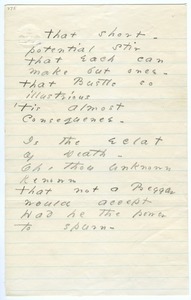 That short -
potential stir
that Each can
make but once -
that Bustle so
illustrious
'tis almost
Consequence -
Is the Eclat
of Death -
Oh, thou Unknown
Renown
that not a Beggar
would accept
Had he the power
to spurn -